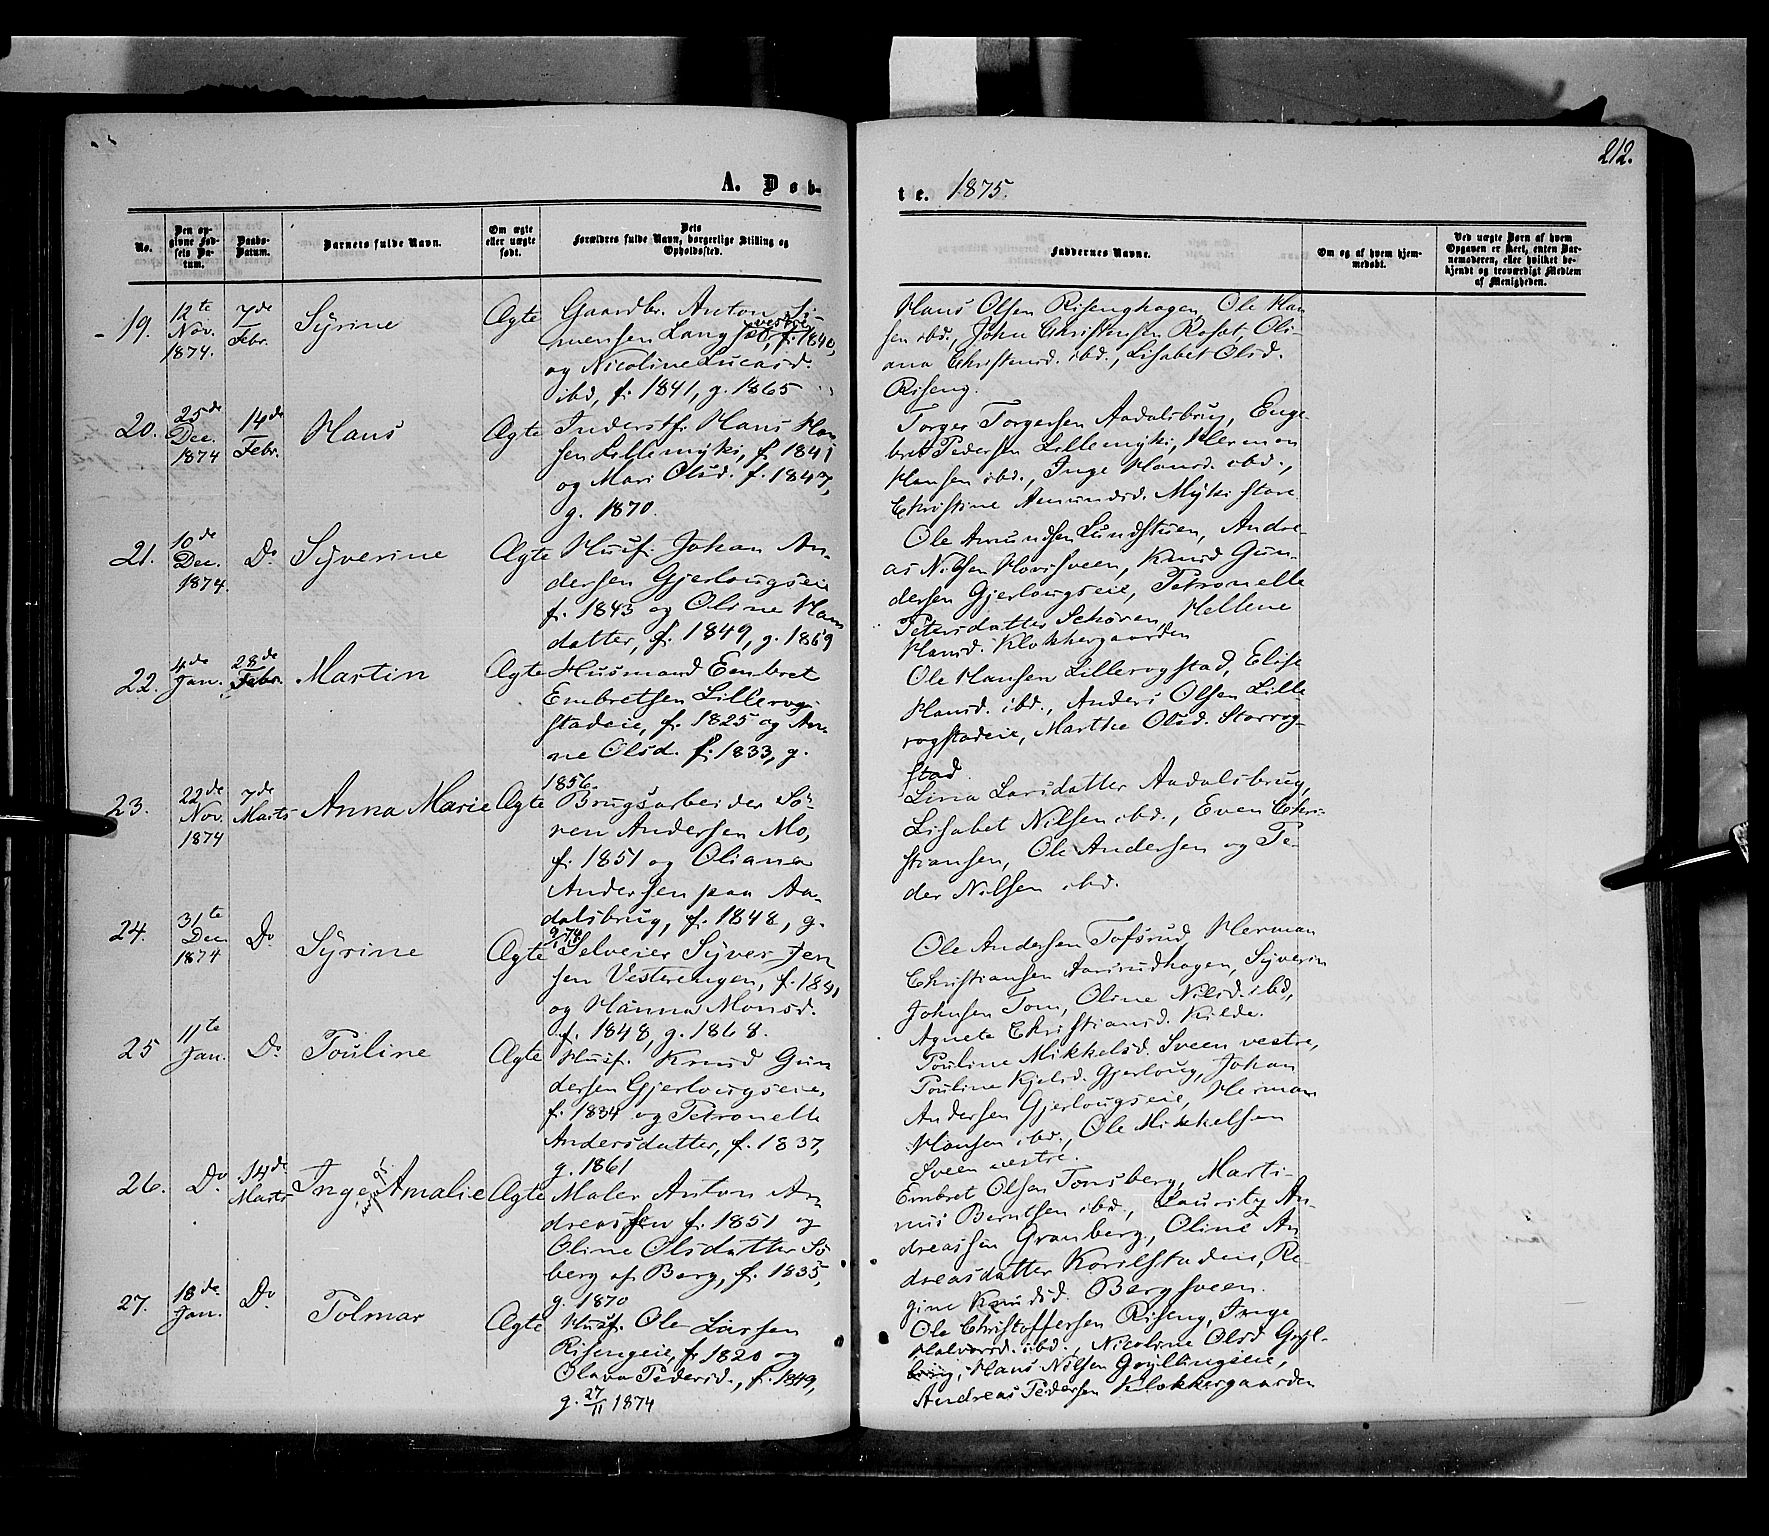 A. Døb-
te. 1875.
212.
No.
Den op-
givne Fød-
sels Da-
tum.
Daabs-
Datum.
Barnets fulde Navn.
Om ægte
eller uægte
født.
Dets
Forældres fulde Navn, borgerlige Stilling og
Opholdssted.
Faddernes Navne.
Om og af hvem hjem-
medøbt.
Ved uægte Born af hvem
Opgaven er skeet, enten Bar-
nemoderen, eller hvilket be-
kjendt og troværdigt Medlem
af Menigheden.
19.
12te
Nov.
1874.
7de
Febr.
Syrine
Ægte
Gaardbr. Anton Si-
mensen Lang vestre, f. 1840,
og Nicoline Lucasd.
ibd, f. 1841, g. 1865
Hans Olsen Risenghagen, Ole Han
sen ibd., John Christensen Roset, Oli-
ana Christensd. ibd., Lisabet Olsd.
Riseng.
20.
25de
Dec.
1874
14de
Febr.
Hans
Ægte
Inderstf. Hans Han-
sen Lillemyki, f. 1841
og Mari Olsd. f. 1847,
g. 1870.
Torger Torgersen Aadalsbrug, Enge-
bret Pedersen Lillemyki, Herman
Hansen ibd., Inge Hansd. ibd.,
Christine Amundsd. Myki store
21.
10de
Dec.
1874.
Do
Syverine
Ægte
Husf. Johan An-
dersen Gjerlougseie
f. 1843 og Oline Hans
datter, f. 1849, g. 1869
Ole Amundsen Lundstuen, Andre-
as Nilsen Hovisveen, Knud Gun-
dersen Gjerlougseie, Petronelle
Petersdatter Schøren, Hellene
Hansd. Klokkergaarden
22.
4de
Jan.
28de
Febr.
Martin
Ægte
Husmand Eembret
Embretsen Lillerog-
stadeie, f. 1825 og An-
ne Olsd. f. 1833, g.
1856.
Ole Hansen Lillerogstad, Elise
Hansd. ibd., Anders Olsen Lille
rogstadeie, Marthe Olsd. Storrog-
stad
23.
22de
Nov.
1874
7de
Marts
Anna Marie
Ægte
Brugsarbeider Sö-
ren Andersen Mo,
f. 1851 og Oliana
Andersen paa Aa-
dalsbrug, f. 1848, g.
Lina Larsdatter Aadalsbrug,
Lisabet Nilsen ibd., Even Chri-
stiansen, Ole Andersen og Pe-
der Nilsen ibd.
24.
31te
Dec.
1874
Do
Syrine
Ægte
Selveier Syver Jen
sen Vesterengen, f. 1841
og Hanna Monsd.
f. 1848, g. 1868.
Ole Andersen Tofsrud, Herman
Christiansen Aasrudhagen, Syverin
Johnsen Tom, Oline Nilsd. ibd,
Agnete Christiansd. Kilde.
25
11te
Jan.
Do
Pouline
Ægte
Husf. Knud Gun
dersen Gjerlougseie,
f. 1834 og Petronelle
Andersdatter, f. 1837,
g. 1861
Pouline Mikkelsd. Sveen vestre,
Pouline Kjelsd. Gjerloug, Johan
Andersen Gjerlougseie, Herman
Hansen ibd., Ole Mikkelsen
Sveen vestre.
26.
Do
14de
Marts
Inge Amalie
Ægte
Maler Anton An
dreassen f. 1851 og
Oline Olsdatter Sö
berg af Berg, f. 1835,
g. 1870
Embret Olsen Tonsberg, Marti-
nus Berntsen ibd., Lauritz An-
dreassen Granberg, Oline An
dreasdatter Korilstadeie, Re-
gine Knudsd. Bergsveen.
27.
18de
Jan.
Do
Tolmar
Ægte
Husf. Ole Larsen
Risengeie, f. 1820 og
Olava Pedersd., f. 1849,
g. 27/11 1874
Ole Christoffersen Riseng, Inge
Halvorsd. ibd., Nicoline Olsd. Gøyl-
ling, Hans Nilsen Gøyllingseie,
Andreas Pedersen Klokkergaarden